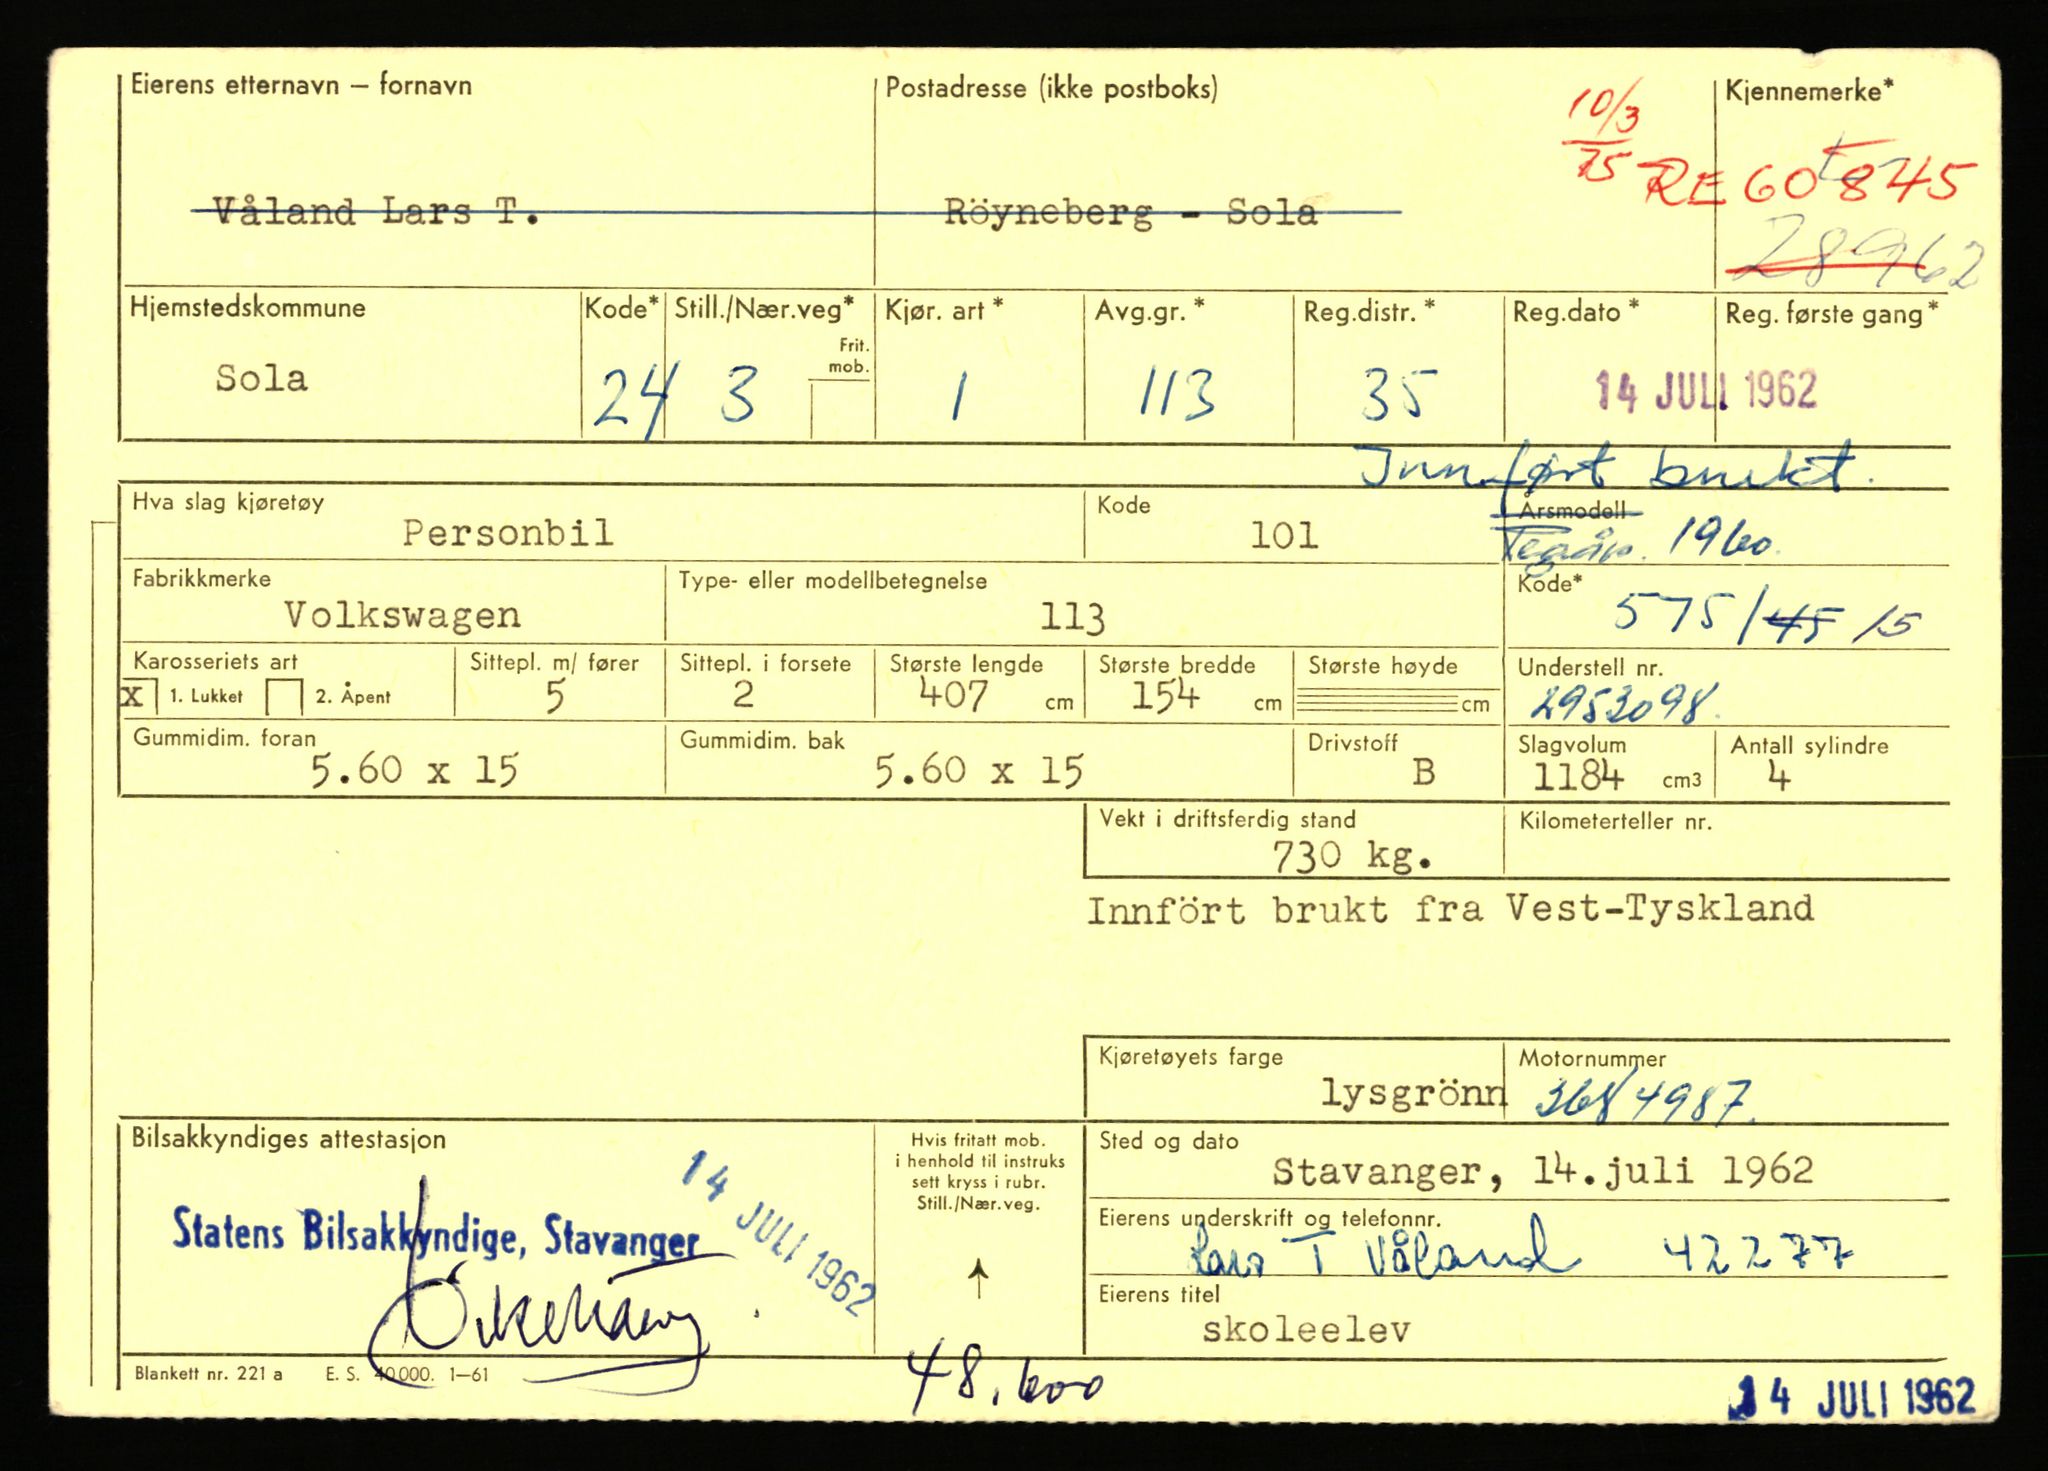 Eierens etternavn – fornavn
Postadresse (ikke postboks)
Kjennemerke*
10/3
75
RE 60845
Våland Lars T.
Röyneberg - Sola
28962
Hjemstedskommune
Kode* Still./Nær.veg* Kjør. art* Avg.gr.* Reg.distr.* Reg.dato* Reg. første gang*
Frit.
mob.
Sola 24 3 1 113 35 14 JULI 1962
Innført brukt.
Hva slag kjøretøy
Personbil
Kode
101
Årsmodell
1960.
Fabrikkmerke
Volkswagen
Type- eller modellbetegnelse
113
Kode*
575/45 15
Karosseriets art
x 1. Lukket 2. Åpent
Sittepl. m/ fører
5
Sittepl. i forsete
2
Største lengde
407 cm
Største bredde
154 cm
Største høyde
cm
Understell nr.
2953098.
Gummidim. foran
5.60 x 15
Gummidim. bak
5.60 x 15
Drivstoff
B
Slagvolum
1184 cm3
Antall sylindre
4
Vekt i driftsferdig stand
730 kg.
Kilometerteller nr.
Innfört brukt fra Vest-Tyskland
Kjøretøyets farge
lysgrönn
Motornummer
3684987.
Bilsakkyndiges attestasjon
14 JULI 1962
Statens Bilsakkyndige, Stavanger
Hvis fritatt mob.
i henhold til instruks
sett kryss i rubr.
Still./Nær.veg.
↑
Sted og dato
Stavanger, 14.juli 1962
Eierens underskrift og telefonnr.
Lars T Våland 42277
Eierens titel
skoleelev
Blankett nr. 221 a E. S. 40000. 1–61
48.600
14 JULI 1962